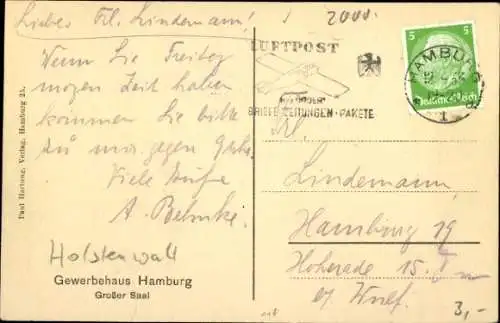 Liebes Frl. Lindemann!
2000.
Wenn Sie Freitag
morgen Zeit haben
kommen Sie bitte
zu mir, gegen
Viele Grüße
A. Behnke.
Holstenwall
Gewerbehaus Hamburg
Großer Saal
Paul Hartung, Verlag, Hamburg 25.
LUFTPOST
BRIEFE ZEITUNGEN · PAKETE
HAMBURG
1
5 5
Deutsches Reich
Frl.
Lindemann,
Hamburg 19
15.
3,-